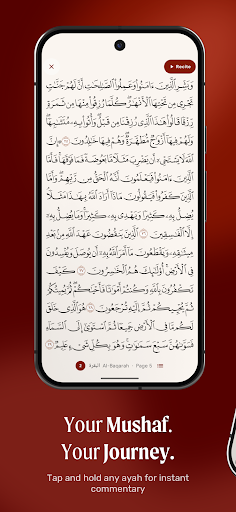 Recite
وَبَشِّرِ ٱلَّذِينَ ءَامَنُوا۟ وَعَمِلُوا۟ ٱلصَّٰلِحَٰتِ أَنَّ لَهُمْ جَنَّٰتٍ
تَجْرِى مِن تَحْتِهَا ٱلْأَنْهَٰرُ كُلَّمَا رُزِقُوا۟ مِنْهَا مِن ثَمَرَةٍ
رِّزْقًا قَالُوا۟ هَٰذَا ٱلَّذِى رُزِقْنَا مِن قَبْلُ وَأُتُوا۟ بِهِۦ مُتَشَٰبِهًا
وَلَهُمْ فِيهَآ أَزْوَٰجٌ مُّطَهَّرَةٌ وَهُمْ فِيهَا خَٰلِدُونَ ٢٥ إِنَّ
ٱللَّهَ لَا يَسْتَحْىِۦٓ أَن يَضْرِبَ مَثَلًا مَّا بَعُوضَةً فَمَا فَوْقَهَا فَأَمَّا
ٱلَّذِينَ ءَامَنُوا۟ فَيَعْلَمُونَ أَنَّهُ ٱلْحَقُّ مِن رَّبِّهِمْ وَأَمَّا
ٱلَّذِينَ كَفَرُوا۟ فَيَقُولُونَ مَاذَآ أَرَادَ ٱللَّهُ بِهَٰذَا مَثَلًا
يُضِلُّ بِهِۦ كَثِيرًا وَيَهْدِى بِهِۦ كَثِيرًا وَمَا يُضِلُّ بِهِۦٓ
إِلَّا ٱلْفَٰسِقِينَ ٢٦ ٱلَّذِينَ يَنقُضُونَ عَهْدَ ٱللَّهِ مِنۢ بَعْدِ
مِيثَٰقِهِۦ وَيَقْطَعُونَ مَآ أَمَرَ ٱللَّهُ بِهِۦٓ أَن يُوصَلَ وَيُفْسِدُونَ
فِى ٱلْأَرْضِ أُو۟لَٰٓئِكَ هُمُ ٱلْخَٰسِرُونَ ٢٧ كَيْفَ
تَكْفُرُونَ بِٱللَّهِ وَكُنتُمْ أَمْوَٰتًا فَأَحْيَٰكُمْ ثُمَّ يُمِيتُكُمْ
ثُمَّ يُحْيِيكُمْ ثُمَّ إِلَيْهِ تُرْجَعُونَ ٢٨ هُوَ ٱلَّذِى خَلَقَ
لَكُم مَّا فِى ٱلْأَرْضِ جَمِيعًا ثُمَّ ٱسْتَوَىٰٓ إِلَى ٱلسَّمَآءِ
فَسَوَّىٰهُنَّ سَبْعَ سَمَٰوَٰتٍ وَهُوَ بِكُلِّ شَىْءٍ عَلِيمٌ ٢٩
2 البقرة Al-Baqarah · Page 5
Your Mushaf.
Your Journey.
Tap and hold any ayah for instant
commentary